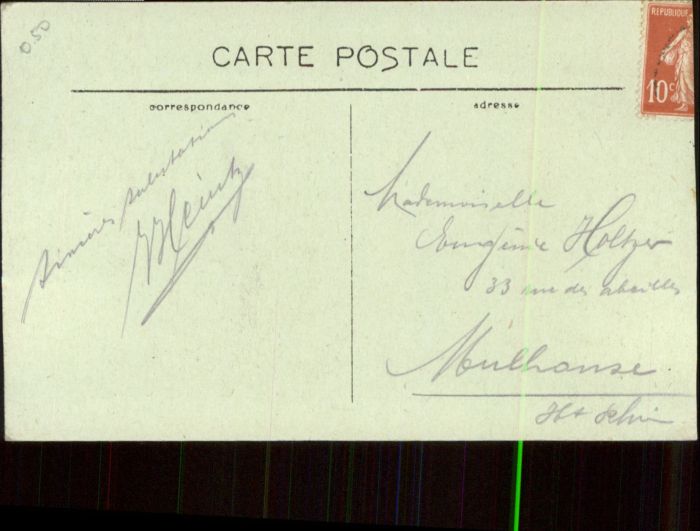 0.50
CARTE POSTALE
REPUBLIQUE
10c
correspondance
adresse
Sincères salutations
Mademoiselle
Eugénie Holtzer
33 rue des abeilles
Mulhouse
Ht Rhin